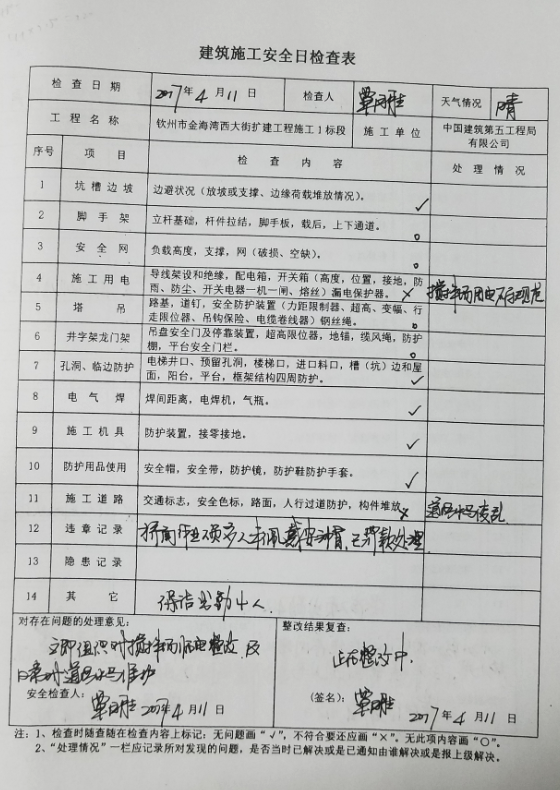 建筑施工安全日检查表
检查日期 2017年4月11日 检查人 天气情况 晴
工程名称 钦州市金海湾西大街扩建工程施工1标段 施工单位 中国建筑第五工程局有限公司
序号 项目 检查内容 处理情况
1 坑槽边坡 边避状况（放坡或支撑、边缘荷载堆放情况）。 ✓
2 脚手架 立杆基础，杆件拉结，脚手板，载后，上下通道。 o
3 安全网 负载高度，支撑，网（破损、空缺）。 o
4 施工用电 导线架设和绝缘，配电箱，开关箱（高度，位置，接地，防
雨、防尘、开关电器一机一闸、熔丝）漏电保护器。 × 搅拌场用电不规范
5 塔吊 路基，道钉，安全防护装置（力距限制器、超高、变幅、行
走限位器、吊钩保险、电缆卷线器）钢丝绳。 o
6 井字架龙门架 吊盘安全门及停靠装置，超高限位器，地锚，缆风绳，防护
棚，平台安全门栏。 o
7 孔洞、临边防护 电梯井口、预留孔洞，楼梯口，进口料口，槽（坑）边和屋
面，阳台，平台，框架结构四周防护。 ✓
8 电气焊 焊间距离，电焊机，气瓶。 ✓
9 施工机具 防护装置，接零接地。 ✓
10 防护用品使用 安全帽，安全带，防护镜，防护鞋防护手套。 ✓
11 施工道路 交通标志，安全色标，路面，人行过道防护，构件堆放 × 水马凌乱
12 违章记录 桥面作业 多人未佩戴安全帽，已罚款处理
13 隐患记录
14 其它 保洁出勤4人
对存在问题的处理意见： 整改结果复查：
立即组织对搅拌场用电整改，及
水马维护
正在整改中.
安全检查人： 2017年4月11日 （签名）： 2017年4月11日
注：1、检查时随查随在检查内容上标记：无问题画“✓”，不符合要还应画“×”。无此项内容画“○”。
2、“处理情况”一栏应记录所对发现的问题，是否当时已解决或是已通知由谁解决或是报上级解决。